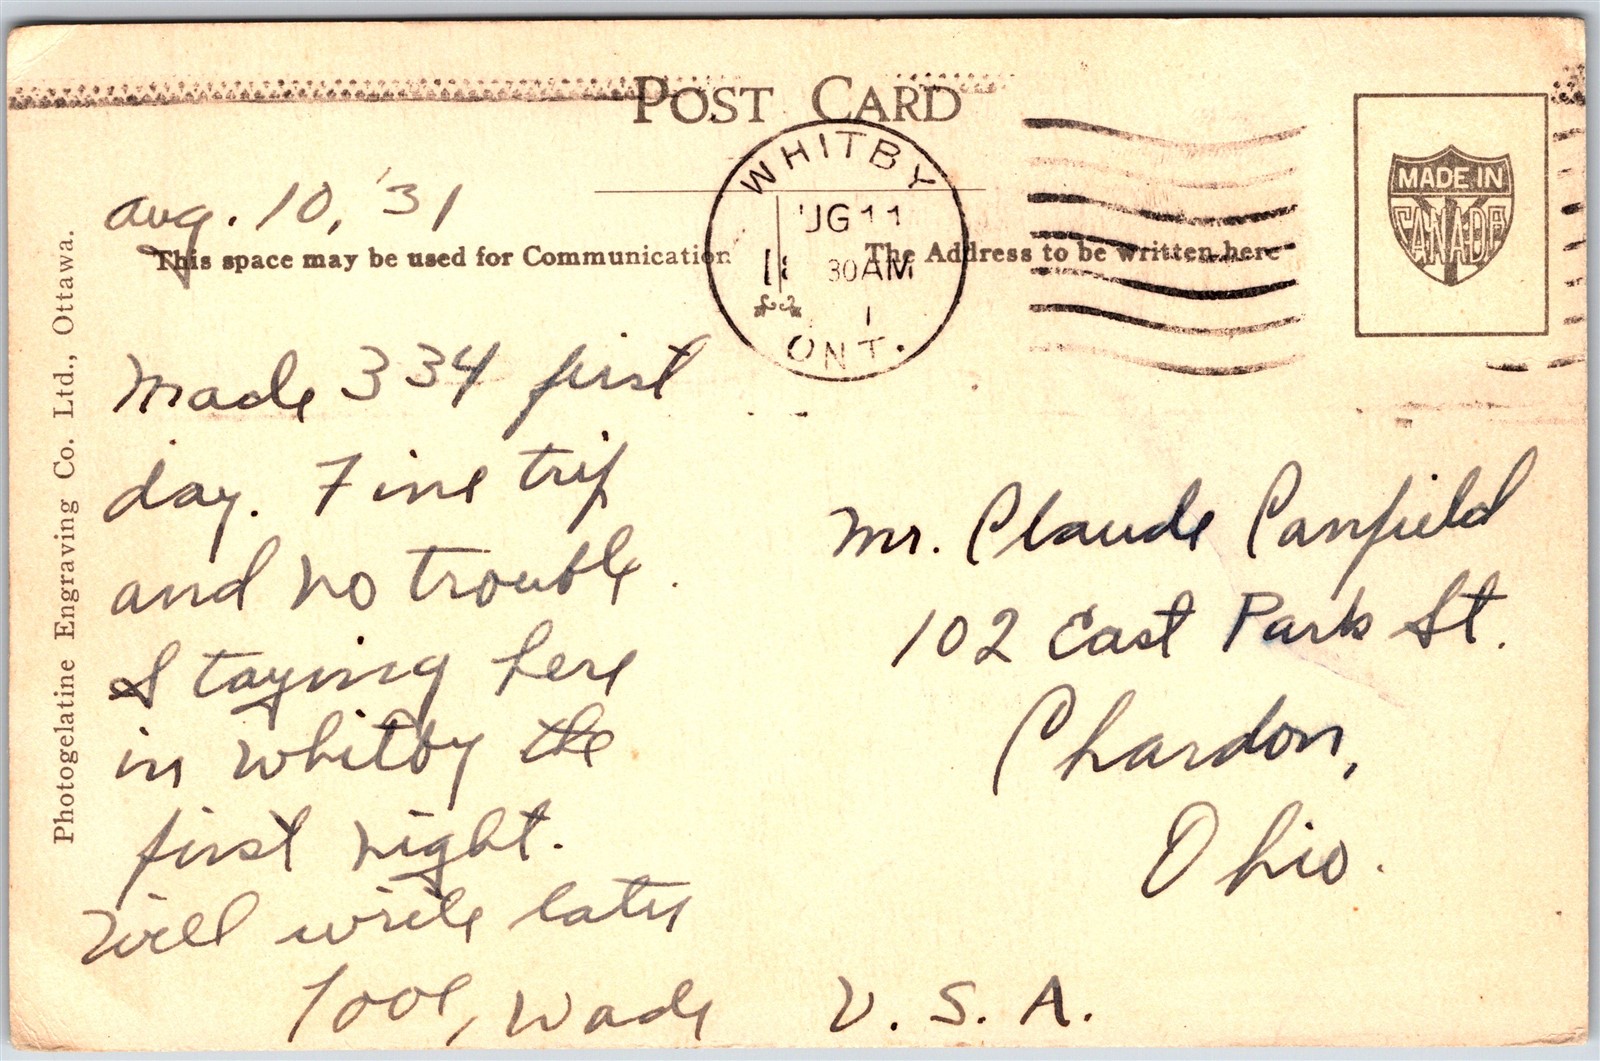 POST CARD
WHITBY
'UG 11
30 AM
1
ONT.
MADE IN
CANADA
Aug. 10, '31
This space may be used for Communication
The Address to be written here
Made 334 first
day. Fine trip
and no trouble.
Staying here
in Whitby the
first night.
Will write later
Wade
Mr. Claude Canfield
102 East Park St.
Chardon,
Ohio.
U. S. A.
Photogelatine Engraving Co. Ltd., Ottawa.